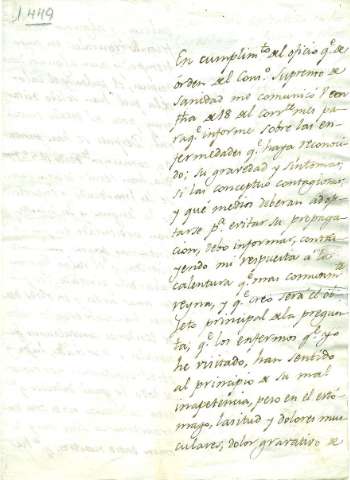 1449
En cumplim.to del oficio q.e de
órden del Cons.o Supremo de
Sanidad me comunicó V. con
fha de 18 del corr.te mes pa
raq.e informe sobre las en
fermedades q.e haya reconoci
do; su gravedad y síntomas;
si las conceptuo contagiosas;
y qué medios deberan adop
tarse p.a evitar su propaga
cion, debo informar, contra
yendo mi respuesta a la
calentura q.e mas comunm.te
reyna, y q.e creo será el ob
jeto principal de la pregun
ta, q.e los enfermos q.e yo
he visitado, han sentido
al principio de su mal
inapetencia, peso en el estó
mago, lasitud y dolores mus
culares; dolor gravativo de